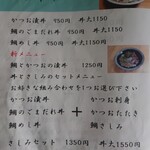 かつお漬丼 950円 丼大1150
鯛のごまだれ丼 950円 丼大1150
鯛めし丼 950円 丼大1150
新メニュー
かつおと鯛の漬丼 1250円
丼とさしみのセットメニュー
お好きな組み合わせを1つお選び下さい
かつお漬丼 かつお刺身
鯛のごまだれ丼 + かつおたたき
鯛めし丼 鯛さしみ
さしみセット 1350円 丼大1550円